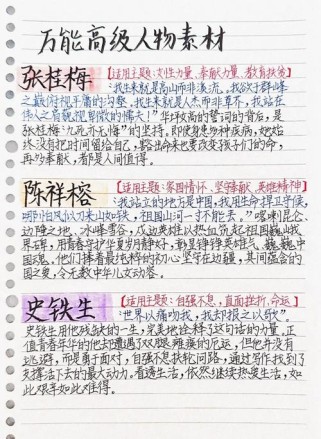 万能高级人物素材
张桂梅
【适用主题:女性力量、奉献力量、教育扶贫】
"我生来就是高山而非溪流,我欲于群峰
之巅俯视平庸的沟壑。我生来就是人杰而非草芥,我站在
伟人之肩藐视卑微的懦夫!"华坪女高的誓词的背后,是
张桂梅"九死亦无悔"的坚持。即使身患多种疾病,她始
终没有把时间留给自己,豁出命来也要改变孩子们的命,
再为奉献,都是人间值得。
陈祥榕
【适用主题:家国情怀、坚守奉献、英雄精神】
"我站立的地方是中国,我用生命捍卫守候,
哪怕风似刀来山如铁,祖国山河一寸不能丢。"喀喇昆仑,
边陲之地,冰峰雪谷,戍边英雄以热血筑起祖国巍山
界碑,用青春守护华夏岁月静好,勃呈铮铮英雄气,巍巍中
国魂。他们捧着最纯粹的初心坚守在边疆,其间蕴含的
国之爱,令无数中华儿女动容。
史铁生
【适用主题:自强不息,直面挫折、命运】
"世界以痛吻我,我却报之以歌"。
史铁生用他残缺的一生,完美地诠释了这句话的力量。正
值青春年华的他却遭遇了双腿瘫痪的厄运,但他并没有
逃避,而是勇于面对,自强不息扶轮问路,通过写作找到了
支撑活下去的最大动力。看透生活,依然继续热爱生活,如
此艰辛如此难得。